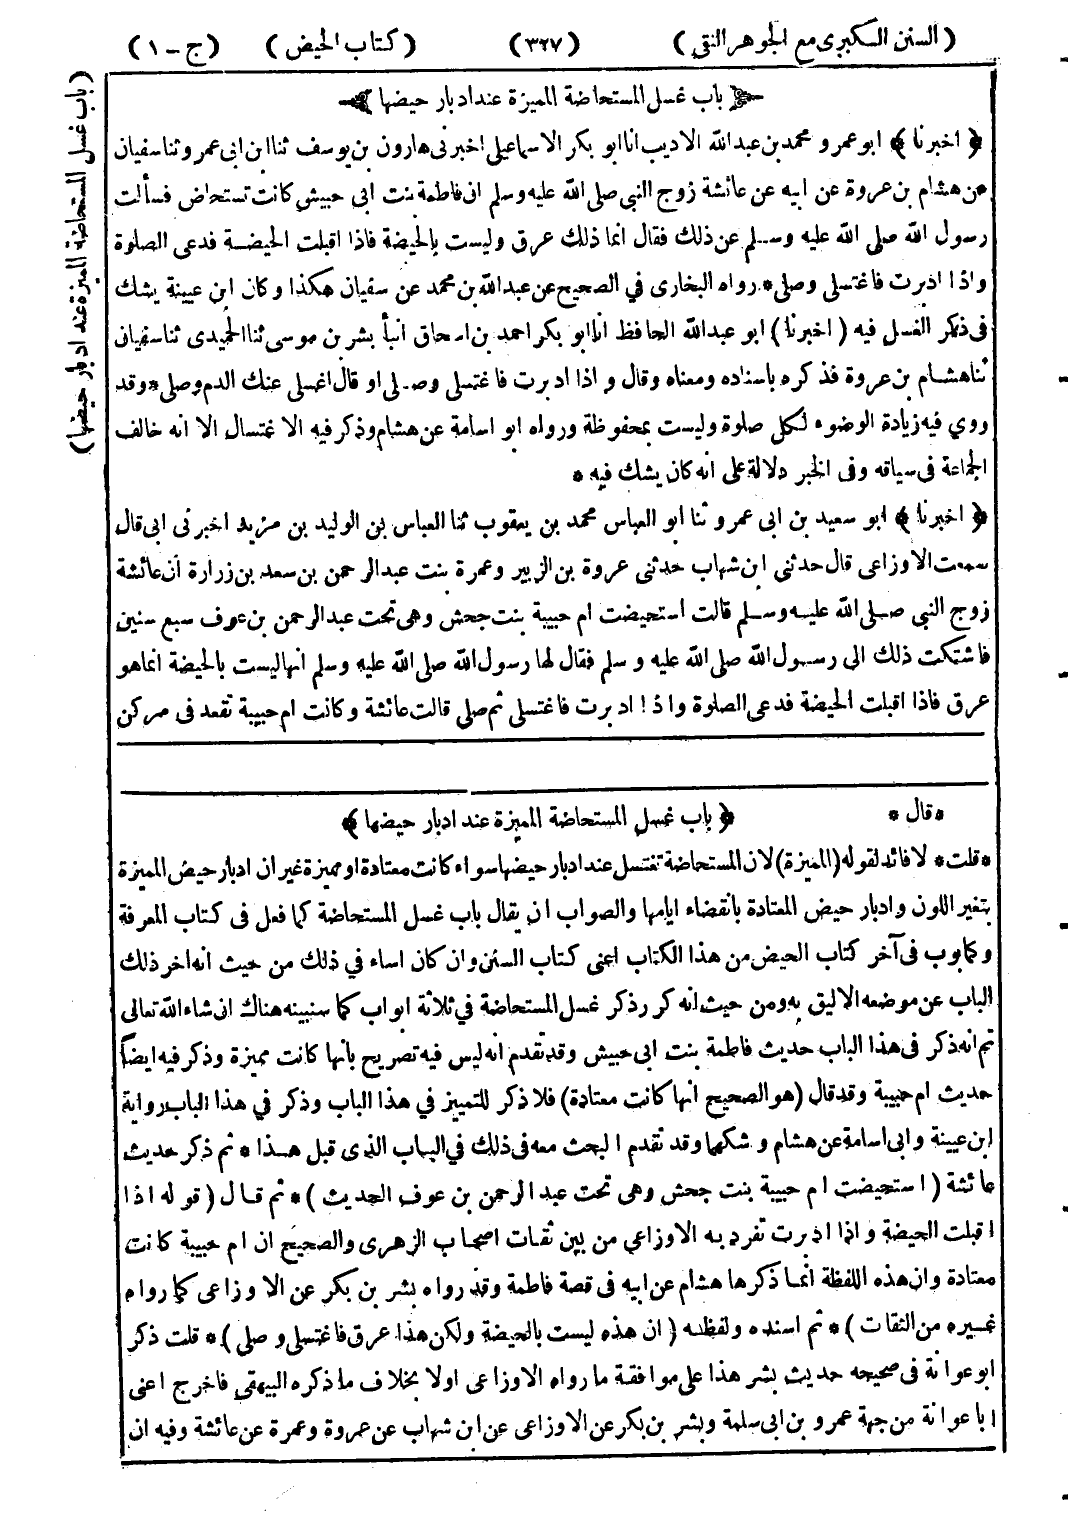 ( السنن الكبرى مع الجوهر النقى ) ( ٣٢٧ ) ( كتاب الحيض ) ( ج - ١ )
( باب غسل المستحاضة المميزة عند ادبار حيضها )
باب غسل المستحاضة المميزة عند ادبار حيضها
﴿ اخبرنا ﴾ ابو عمرو محمد بن عبد الله الاديب انا ابو بكر الاسماعيلى اخبرنى هارون بن يوسف ثنا ابن ابى عمرو ثنا سفيان
عن هشام بن عروة عن ابيه عن عائشة زوج النبي صلى الله عليه وسلم ان فاطمة بنت ابى حبيش كانت تستحاض فسألت
رسول الله صلى الله عليه وسلم عن ذلك فقال انما ذلك عرق وليست بالحيضة فاذا اقبلت الحيضة فدعى الصلوة
واذا ادبرت فاغتسلى وصلى * رواه البخارى في الصحيح عن عبد الله بن محمد عن سفيان هكذا وكان ابن عيينة يشك
فى ذكر الغسل فيه ( اخبرنا ) ابو عبد الله الحافظ انا ابو بكر احمد بن اسحاق انبأ بشر بن موسى ثنا الحميدى ثنا سفيان
ثنا هشام بن عروة فذكره باسناده ومعناه وقال واذا ادبرت فاغتسلى وصلى او قال اغسلى عنك الدم وصلى * وقد
روي فيه زيادة الوضوء لكل صلوة وليست بمحفوظة ورواه ابو اسامة عن هشام وذكر فيه الاغتسال الا انه خالف
الجماعة فى سياقه وفى الخبر دلالة على انه كان يشك فيه *
﴿ اخبرنا ﴾ ابو سعيد بن ابى عمرو ثنا ابو العباس محمد بن يعقوب ثنا العباس بن الوليد بن مزيد اخبرنى ابى قال
سمعت الاوزاعى قال حدثنى ابن شهاب حدثنى عروة بن الزبير وعمرة بنت عبد الرحمن بن سعد بن زرارة ان عائشة
زوج النبي صلى الله عليه وسلم قالت استحيضت ام حبيبة بنت جحش وهى تحت عبد الرحمن بن عوف سبع سنين
فاشتكت ذلك الى رسول الله صلى الله عليه وسلم فقال لها رسول الله صلى الله عليه وسلم انها ليست بالحيضة انما هو
عرق فاذا اقبلت الحيضة فدعى الصلوة واذا ادبرت فاغتسلى ثم صلى قالت عائشة وكانت ام حبيبة تقعد فى مركن
* قال * ﴿ باب غسل المستحاضة المميزة عند ادبار حيضها ﴾
* قلت * لا فائد لقوله ( المميزة ) لان المستحاضة تغتسل عند ادبار حيضها سواء كانت معتادة او مميزة غير ان ادبار حيض المميزة
بتغير اللون وادبار حيض المعتادة بانقضاء ايامها والصواب ان يقال باب غسل المستحاضة كما فعل فى كتاب المعرفة
وكما بوب فى آخر كتاب الحيض من هذا الكتاب اعنى كتاب السنن وان كان اساء في ذلك من حيث انه اخر ذلك
الباب عن موضعه الاليق به ومن حيث انه كرر ذكر غسل المستحاضة في ثلاثة ابواب كما سنبينه هناك ان شاء الله تعالى
ثم انه ذكر فى هذا الباب حديث فاطمة بنت ابى حبيش وقد تقدم انه ليس فيه تصريح بانها كانت مميزة وذكر فيه ايضاً
حديث ام حبيبة وقد قال ( هو الصحيح انها كانت معتادة ) فلا ذكر للتمييز في هذا الباب وذكر في هذا الباب رواية
ابن عيينة وابى اسامة عن هشام وشكهما وقد تقدم البحث معه فى ذلك في الباب الذى قبل هذا * ثم ذكر حديث
عائشة ( استحيضت ام حبيبة بنت جحش وهى تحت عبد الرحمن بن عوف الحديث ) * ثم قال ( قوله اذا
اقبلت الحيضة واذا ادبرت تفرد به الاوزاعي من بين ثقات اصحاب الزهرى والصحيح ان ام حبيبة كانت
معتادة وان هذه اللفظة انما ذكرها هشام عن ابيه فى قصة فاطمة وقد رواه بشر بن بكر عن الاوزاعى كما رواه
غيره من الثقات ) * ثم اسنده ولفظه ( ان هذه ليست بالحيضة ولكن هذا عرق فاغتسلى وصلى ) * قلت ذكر
ابو عوانة فى صحيحه حديث بشر هذا على موافقة ما رواه الاوزاعى اولا بخلاف ما ذكره البيهقى فاخرج اعنى
ابا عوانة من جهة عمرو بن ابى سلمة وبشر بن بكر عن الاوزاعى عن ابن شهاب عن عروة وعمرة عن عائشة وفيه ان